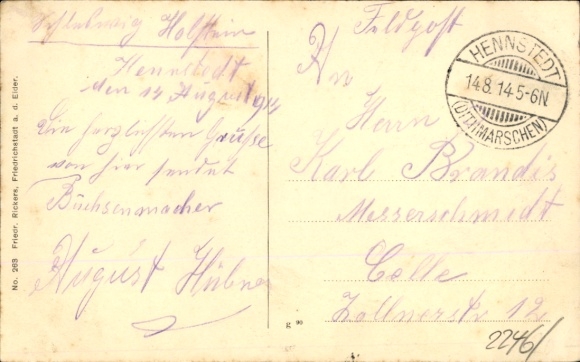 Schleßwig Holstein
Hennstedt
den 14 August 1914
Die herzlichsten Grüße
von hier sendet
Büchsenmacher
August Hübner
Feldpost
An
Herrn
Karl Brandis
Messerschmedt
Celle
Zöllnerstr 12
HENNSTEDT
14.8.14.5-6N
(DITHMARSCHEN)
No. 263 Friedr. Rickers, Friedrichstadt a. d. Eider.
g 90
2246/